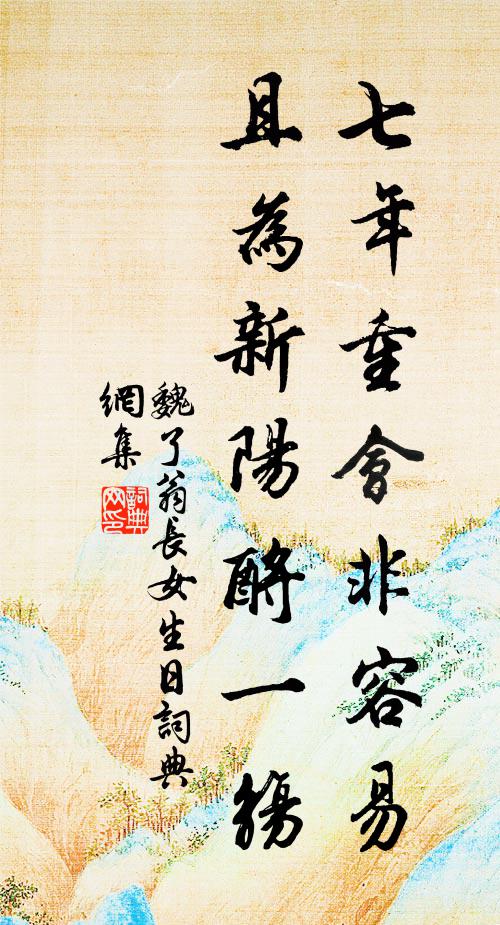 七年重會非容易
且為新陽酹一觴
魏了翁長女生日詞典
網集
詞典
网印